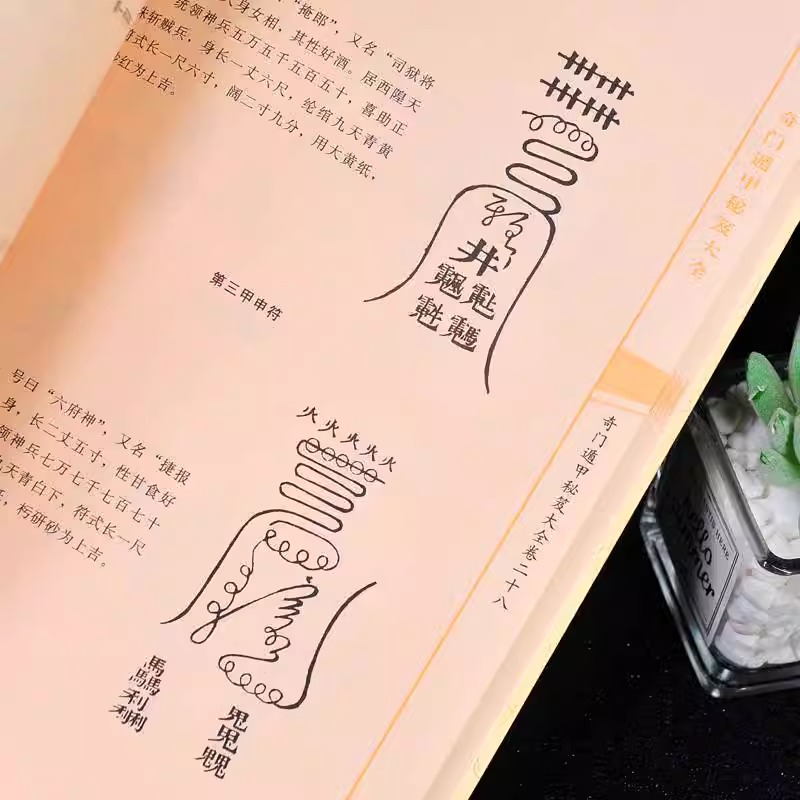 “掩郎”，又名“司狱将
人身女相，其性好酒。居西隍天
统领神兵五万五千五百五十，喜助正
诛斩贼兵，身长一丈六尺，纶绾九天青黄
符式长一尺六寸，阔二寸九分，用大黄纸，
红为上吉。
井
第三甲申符
号曰“六府神”，又名“捷报
身，长二丈五寸，性甘食好
领神兵七万七千七百七十
天青白下，符式长一尺
，朽研砂为上吉。
火火火火火
馬
利
奇门遁甲秘笈大全
奇门遁甲秘笈大全卷二十八
hello
summer